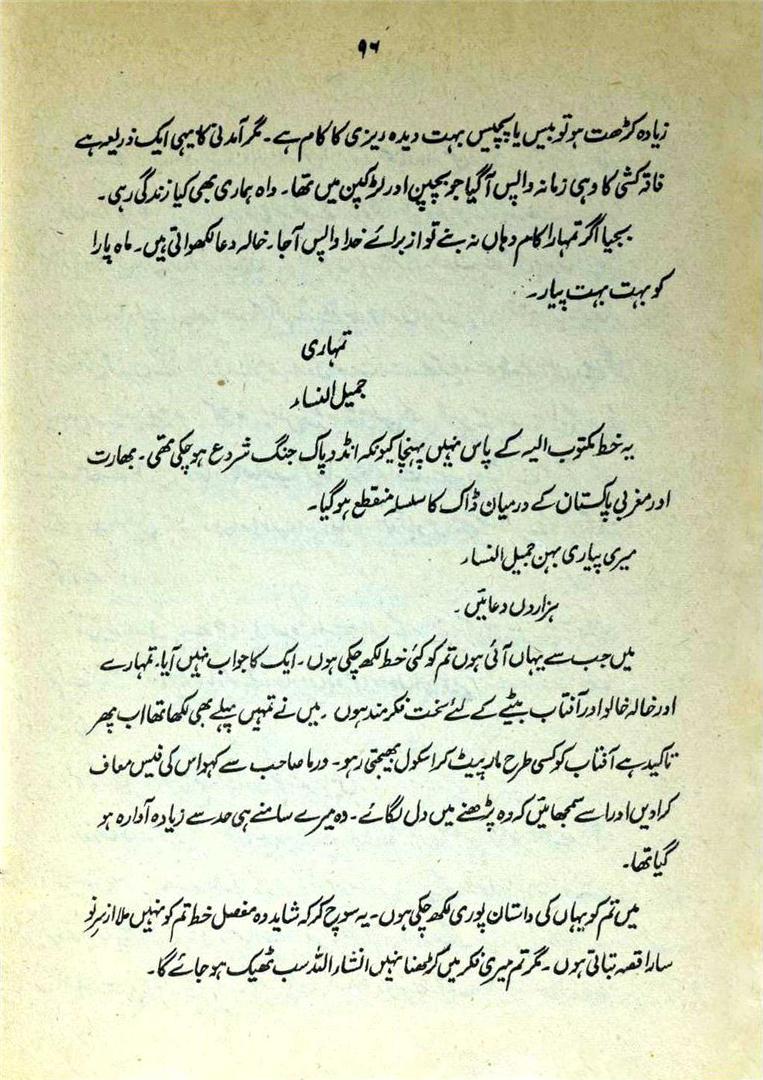 ۹۶
زیادہ کڑھت ہو تو بیس یا پچیس بہت دیدہ ریزی کا کام ہے۔ مگر آمدنی کا یہی ایک ذریعہ ہے
فاقہ کشی کا وہی زمانہ واپس آگیا جو بچپن اور لڑکپن میں تھا۔ واہ ہماری بھی کیا زندگی رہی۔
بجیا اگر تمہارا کام وہاں نہ بنے تو از برائے خدا واپس آجا۔ خالہ دعا لکھواتی ہیں۔ ماہ پارا
کو بہت بہت پیار۔
تمہاری
جمیل النساء
یہ خط مکتوب الیہ کے پاس نہیں پہنچا کیونکہ انڈو پاک جنگ شروع ہوچکی تھی۔ بھارت
اور مغربی پاکستان کے درمیان ڈاک کا سلسلہ منقطع ہوگیا۔
میری پیاری بہن جمیل النساء
ہزاروں دعائیں۔
میں جب سے یہاں آئی ہوں تم کو کئی خط لکھ چکی ہوں۔ ایک کا جواب نہیں آیا۔ تمہارے
اور خالہ خالو اور آفتاب بیٹے کے لئے سخت فکر مند ہوں۔ میں نے تمہیں پہلے بھی لکھا تھا اب پھر
تاکید ہے آفتاب کو کسی طرح مار پیٹ کر اسکول بھیجتی رہو۔ ورما صاحب سے کہو اس کی فیس معاف
کرادیں اور اسے سمجھائیں کہ وہ پڑھنے میں دل لگائے۔ وہ میرے سامنے ہی حد سے زیادہ آوارہ ہو
گیا تھا۔
میں تم کو یہاں کی داستان پوری لکھ چکی ہوں۔ یہ سوچ کر کہ شاید وہ مفصل خط تم کو نہیں ملا از سرِ نو
سارا قصہ بتاتی ہوں۔ مگر تم میری فکر میں کڑھنا نہیں انشاء اللہ سب ٹھیک ہو جائے گا۔